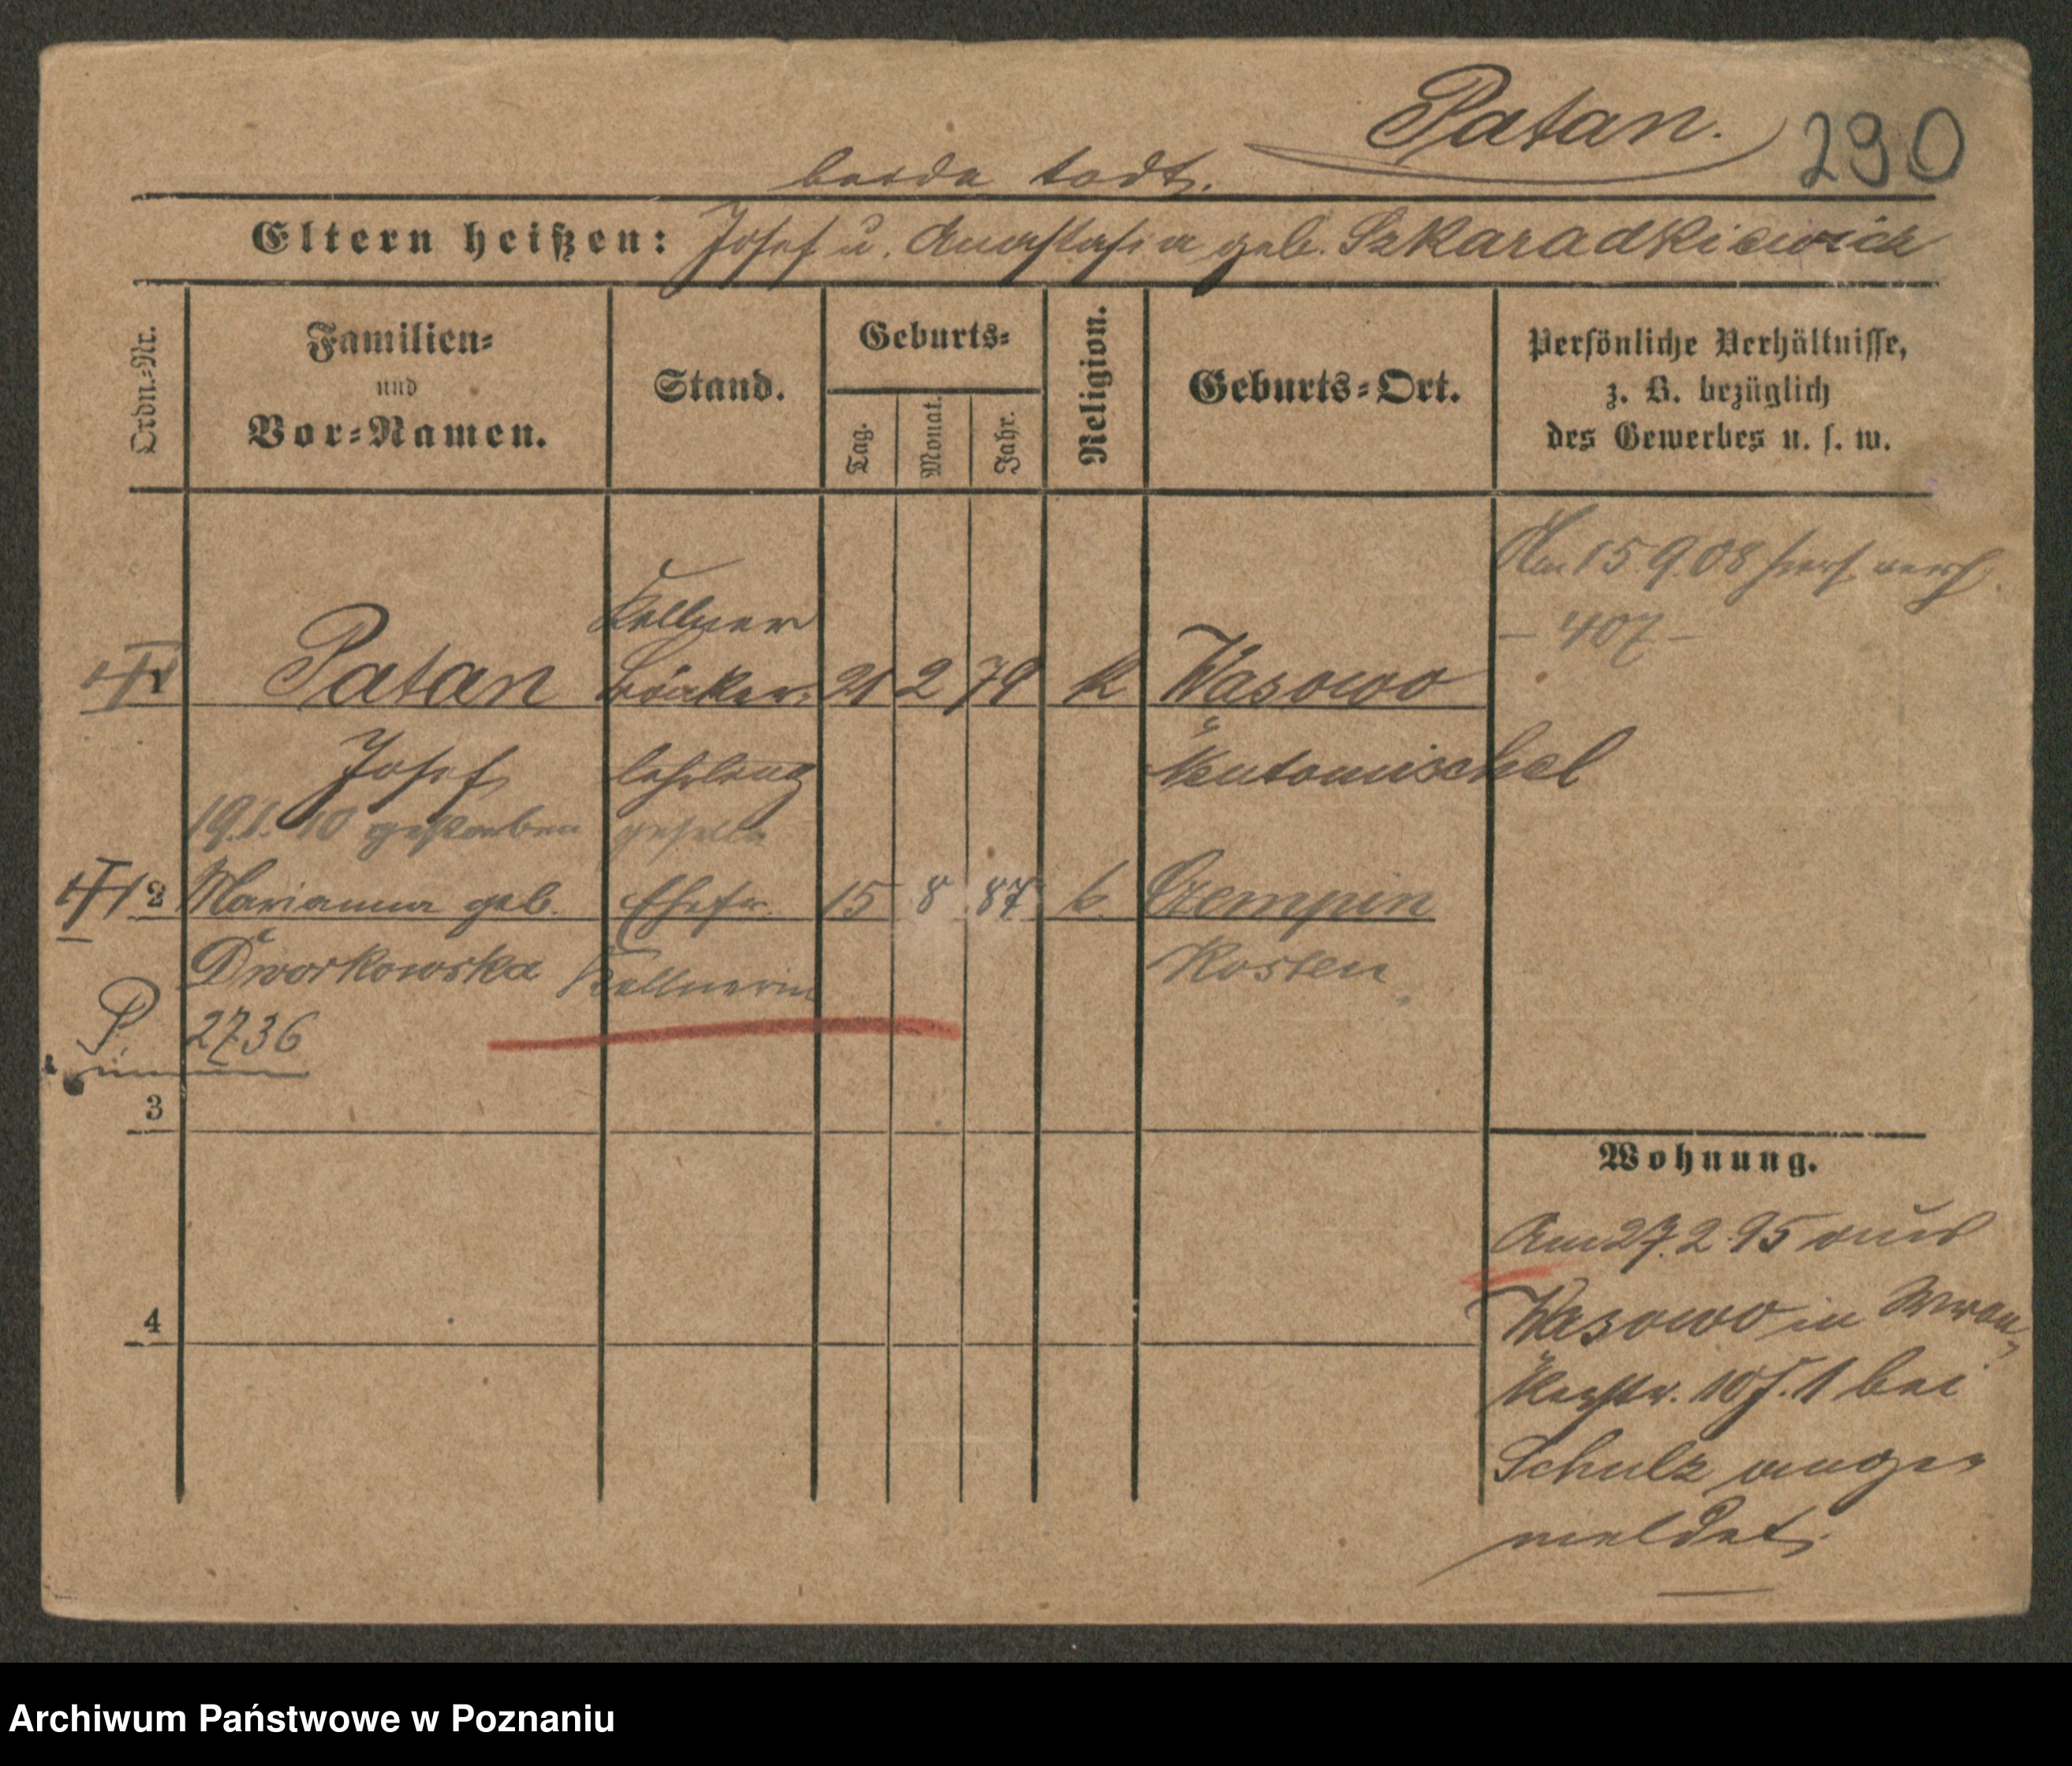 Patan. 290
beide todt.
Eltern heißen: Josef u. Anastasia geb. Szkaradkiewicz
Ordn.-Nr.
Familien=
und
Vor=Namen.
Stand.
Geburts=
Tag. Monat. Jahr.
Religion.
Geburts=Ort.
Persönliche Verhältnisse,
z. B. bezüglich
des Gewerbes u. s. w.
Am 15.9.08 hier verh.
- 407 -
Kellner
Patan Bäcker= 21 2 79 k Wasowo
Josef lehrling Neutomischel
19.1.10 gestorben geselle
2 Marianna geb. Ehefr. 15 8 87 k. Czempin
Dworkowska Kellnerin Kosten
P. 2736
3
4
Wohnung.
Am 27.2.95 aus
Wasowo in Wron=
kerstr. 10 I. 1 bei
Schulz ange=
meldet.
Archiwum Państwowe w Poznaniu